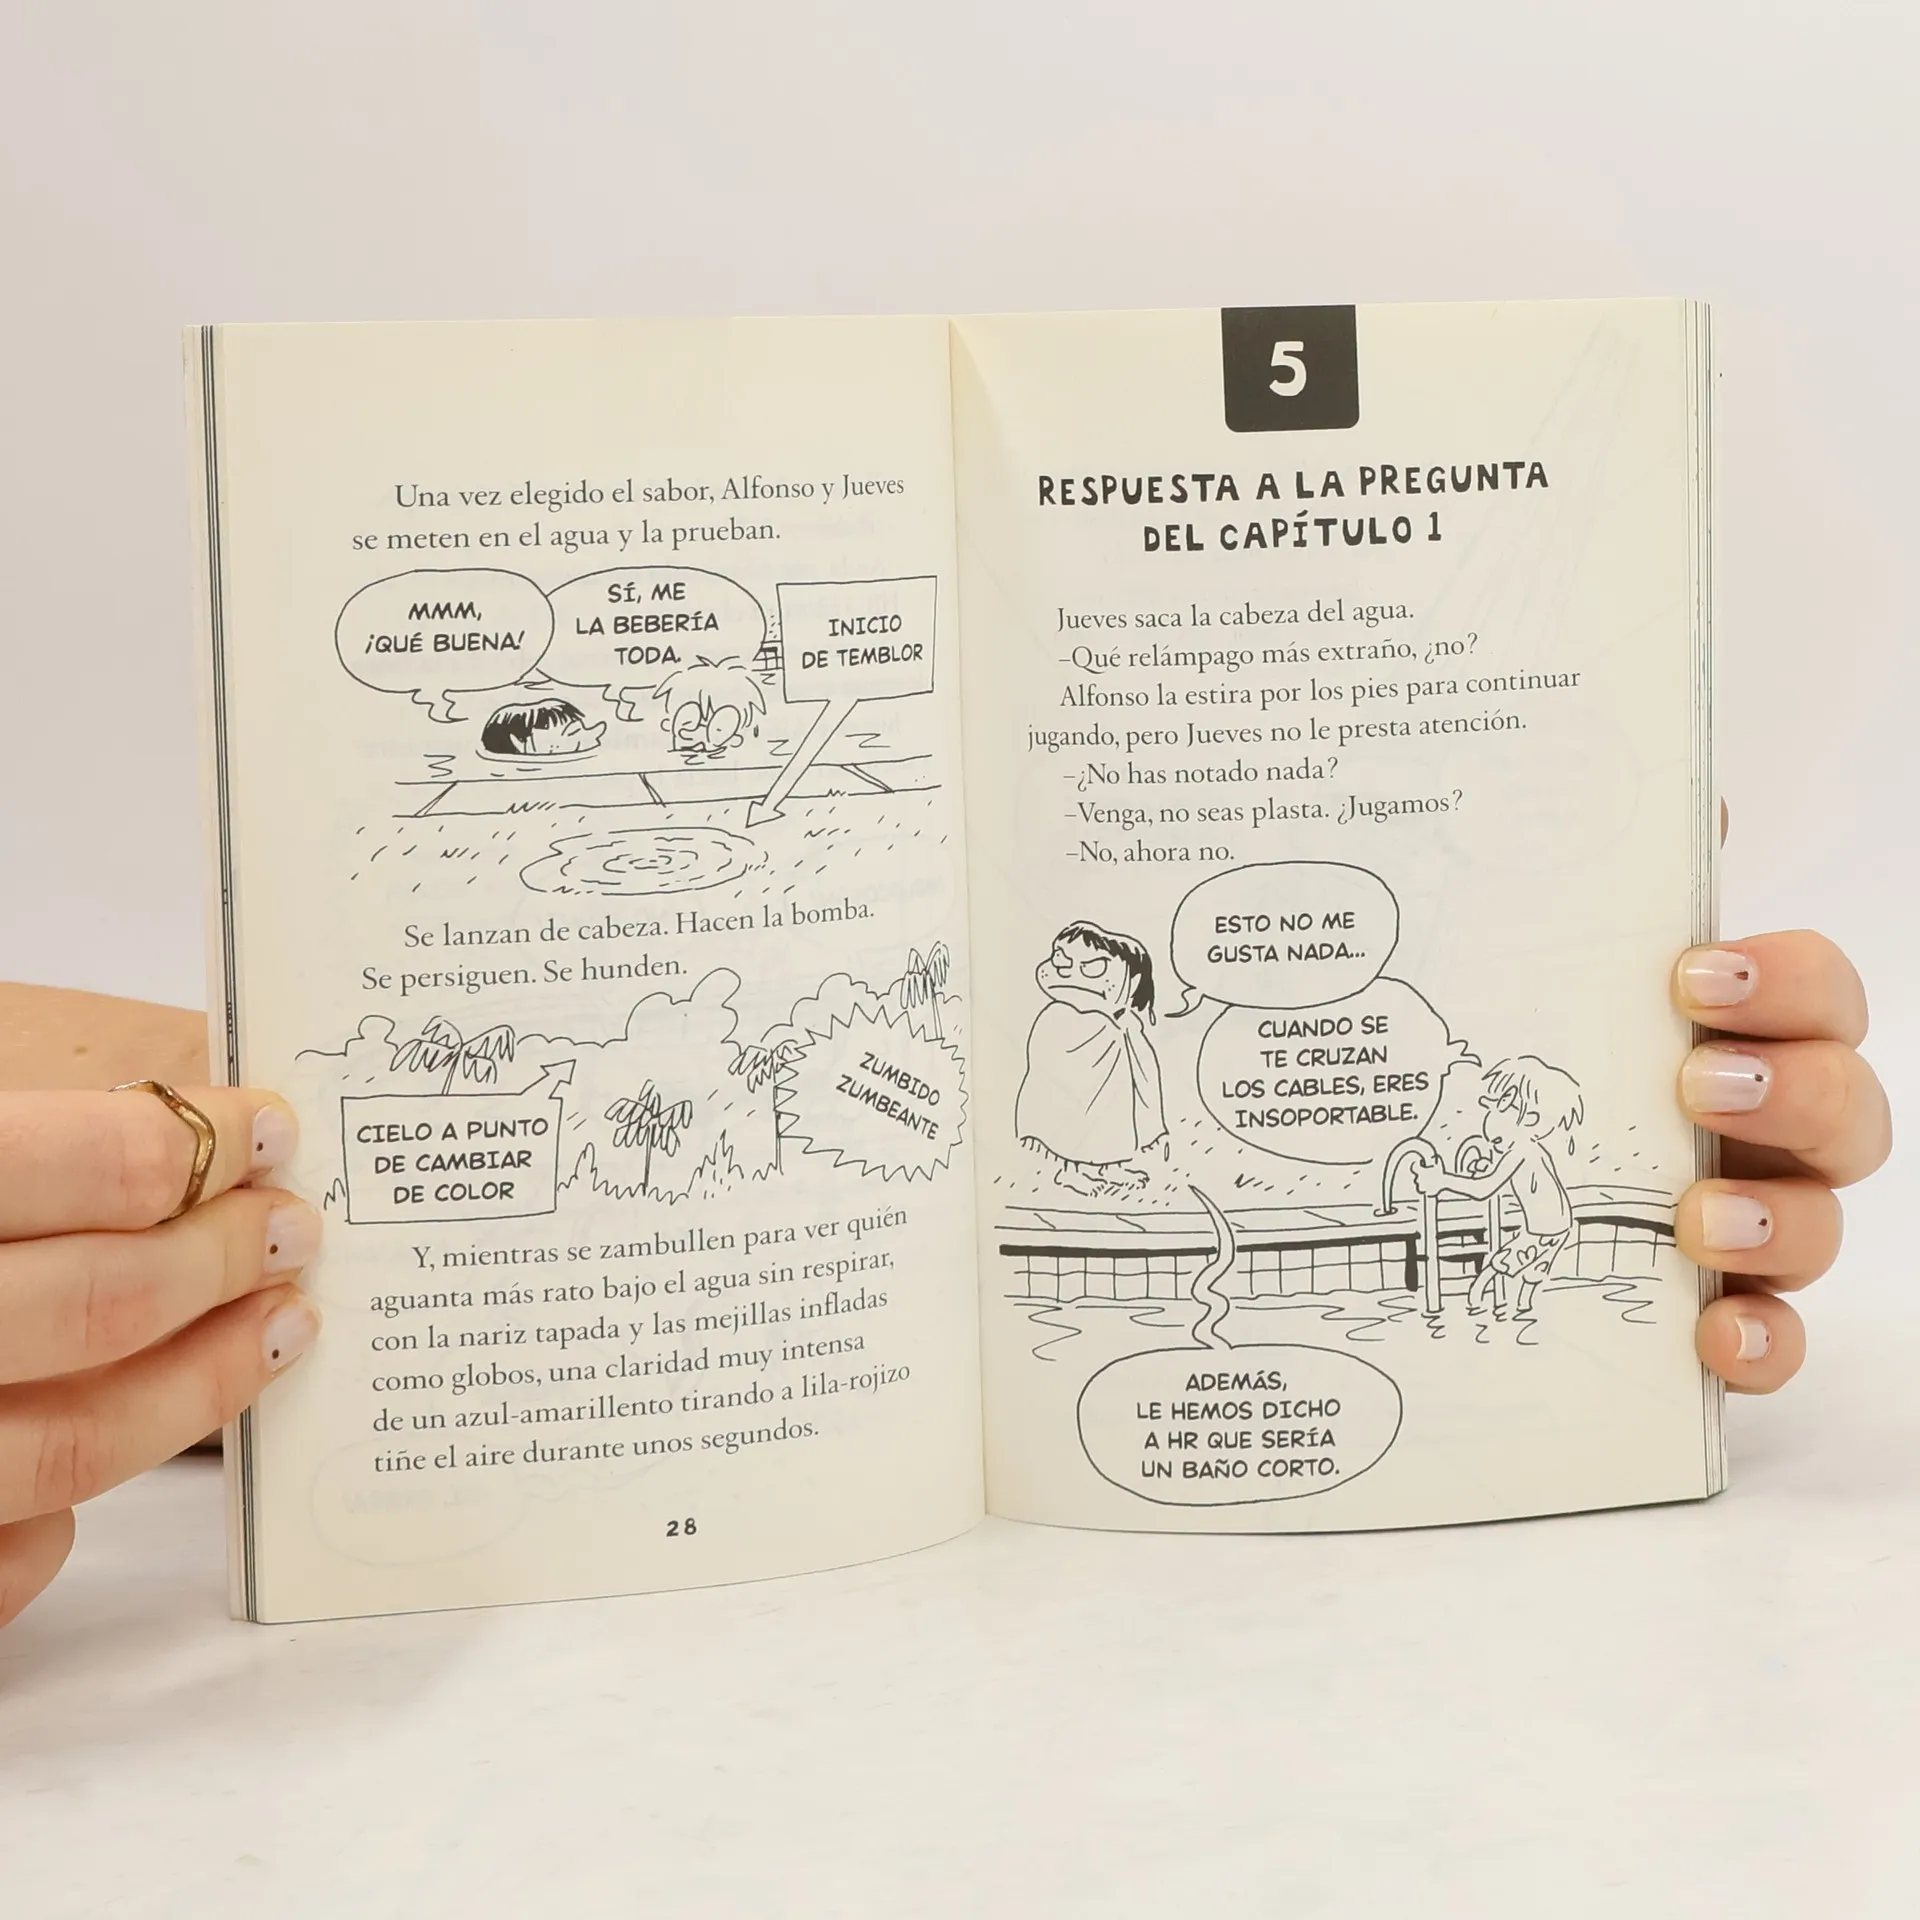 Una vez elegido el sabor, Alfonso y Jueves
se meten en el agua y la prueban.
MMM,
¡QUÉ BUENA!
SÍ, ME
LA BEBERÍA
TODA.
INICIO
DE TEMBLOR
Se lanzan de cabeza. Hacen la bomba.
Se persiguen. Se hunden.
CIELO A PUNTO
DE CAMBIAR
DE COLOR
ZUMBIDO
ZUMBEANTE
Y, mientras se zambullen para ver quién
aguanta más rato bajo el agua sin respirar,
con la nariz tapada y las mejillas infladas
como globos, una claridad muy intensa
de un azul-amarillento tirando a lila-rojizo
tiñe el aire durante unos segundos.
28
5
RESPUESTA A LA PREGUNTA
DEL CAPÍTULO 1
Jueves saca la cabeza del agua.
–Qué relámpago más extraño, ¿no?
Alfonso la estira por los pies para continuar
jugando, pero Jueves no le presta atención.
–¿No has notado nada?
–Venga, no seas plasta. ¿Jugamos?
–No, ahora no.
ESTO NO ME
GUSTA NADA...
CUANDO SE
TE CRUZAN
LOS CABLES, ERES
INSOPORTABLE.
ADEMÁS,
LE HEMOS DICHO
A HR QUE SERÍA
UN BAÑO CORTO.